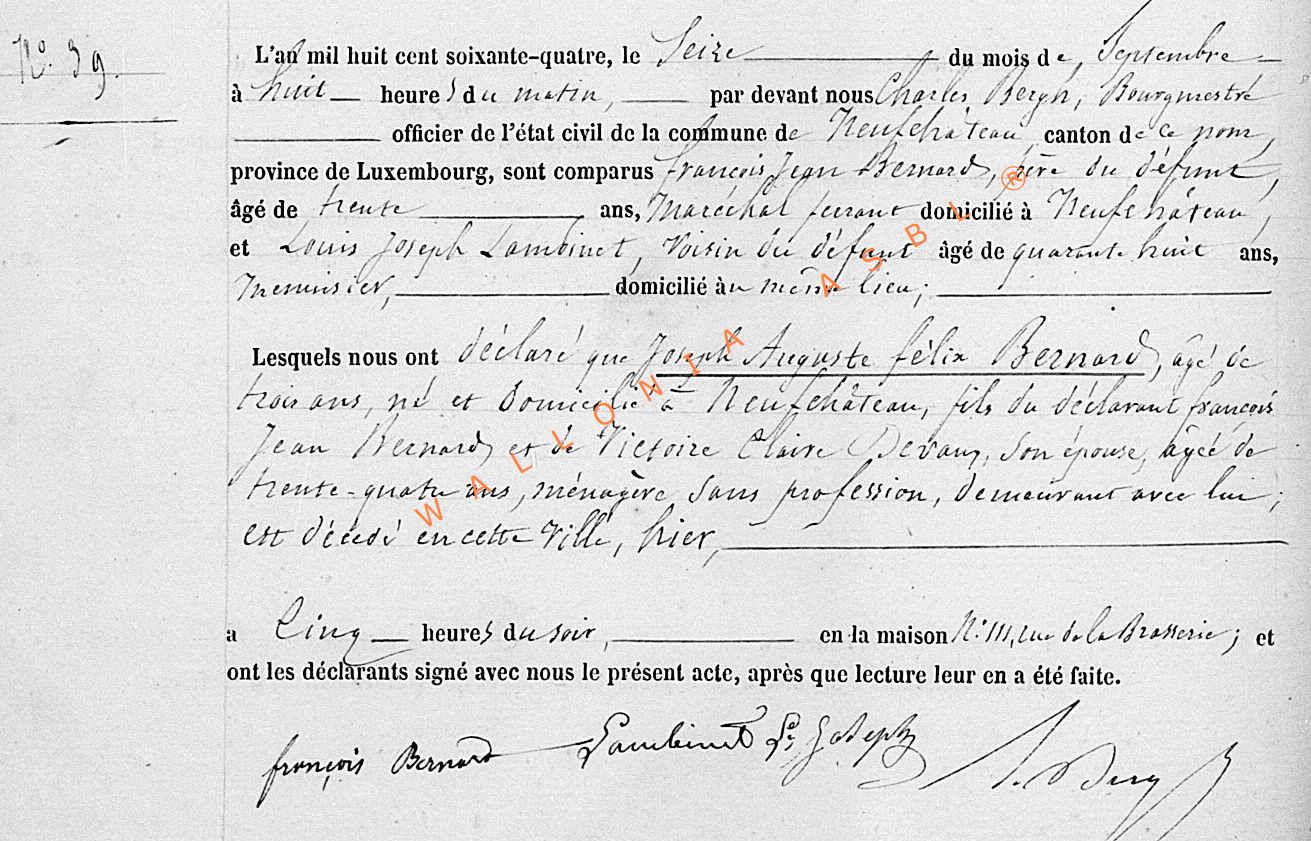 N.º 39.
L'an mil huit cent soixante-quatre, le Seize du mois de Septembre
à huit heures du matin, par devant nous Charles Bergh, Bourgmestre
officier de l'état civil de la commune de Neufchâteau, canton de ce nom,
province de Luxembourg, sont comparus françois Jean Bernard, père du défunt,
âgé de trente ans, Maréchal ferrant domicilié à Neufchâteau,
et Louis Joseph Lambinet, Voisin du défunt âgé de quarante huit ans,
Menuisier, domicilié au même lieu;
Lesquels nous ont déclaré que Joseph Auguste félix Bernard, âgé de
trois ans, né et domicilié à Neufchâteau, fils du déclarant françois
Jean Bernard et de Victoire Claire Devaux, son épouse, âgée de
trente-quatre ans, ménagère sans profession, demeurant avec lui;
est décédé en cette Ville, hier,
a Cinq heures du soir, en la maison N.º 111, rue de la Brasserie; et
ont les déclarants signé avec nous le présent acte, après que lecture leur en a été faite.
françois Bernard Lambinet Ls Joseph
WALLONIA ASBL ®